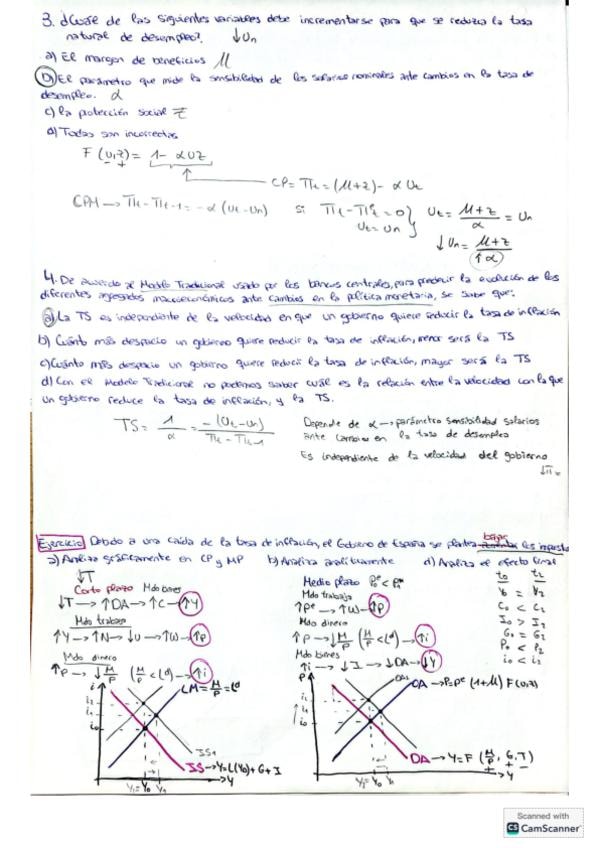 3. ¿Cuál de las siguientes variables debe incrementarse para que se reduzca la tasa
natural de desempleo? ↓Un
a) El margen de beneficios μ
b) El parámetro que mide la sensibilidad de los salarios nominales ante cambios en la tasa de
desempleo. α
c) La protección social z
d) Todas son incorrectas
F(u,z) = 1 - αuz
- +
CP = πt = (μ+z) - α Ut
CPM → πt - πt-1 = -α (Ut - Un)
si πt - πt^e = 0 } Ut = μ+z / α = Un
Ut = Un
↓Un = μ+z / ↑α
4. De acuerdo al Modelo Tradicional usado por los bancos centrales, para predecir la evolución de los
diferentes agregados macroeconómicos ante cambios en la política monetaria, se sabe que:
a) La TS es independiente de la velocidad en que un gobierno quiere reducir la tasa de inflación
b) Cuánto más despacio un gobierno quiere reducir la tasa de inflación, menor será la TS
c) Cuánto más despacio un gobierno quiere reducir la tasa de inflación, mayor será la TS
d) Con el Modelo Tradicional no podemos saber cuál es la relación entre la velocidad con la que
un gobierno reduce la tasa de inflación, y la TS.
TS = 1/α = -(Ut - Un) / πt - πt-1
Depende de α → parámetro sensibilidad salarios
ante cambios en la tasa de desempleo
Es independiente de la velocidad del gobierno
↓π =
bajar
Ejercicio Debido a una caída de la tasa de inflación, el Gobierno de España se plantea los impuestos
a) Analiza gráficamente en CP y MP b) Analiza analíticamente d) Analiza el efecto final
↓T
Corto plazo Mdo bienes
↓T → ↑DA → ↑C → ↑Y
Mdo trabajo
↑Y → ↑N → ↓u → ↑W → ↑P
Mdo dinero
↑P → ↓M/P (M/P < L^d) → ↑i
i
LM = M/P = L^d
i2
i1
i0
IS1
IS → Y = 
Y2 = Y0 Y1
Y
Medio plazo
Mdo trabajo
↑P^e → ↑W → ↑P
Mdo dinero
↑P → ↓M/P (M/P < L^d) → ↑i
Mdo bienes
↑i → ↓I → ↓DA → ↓Y
P
OA → P = P^e (1+μ) F(u,z)
i2
i1
i0
DA → Y = F (M/P, G, T)
+ + -
Y2 = Y0 Y1
Y
t0 t2
Y0 = Y2
C0 < C2
I0 > I2
G0 = G2
P0 < P2
i0 < i2
Scanned with
CS CamScanner